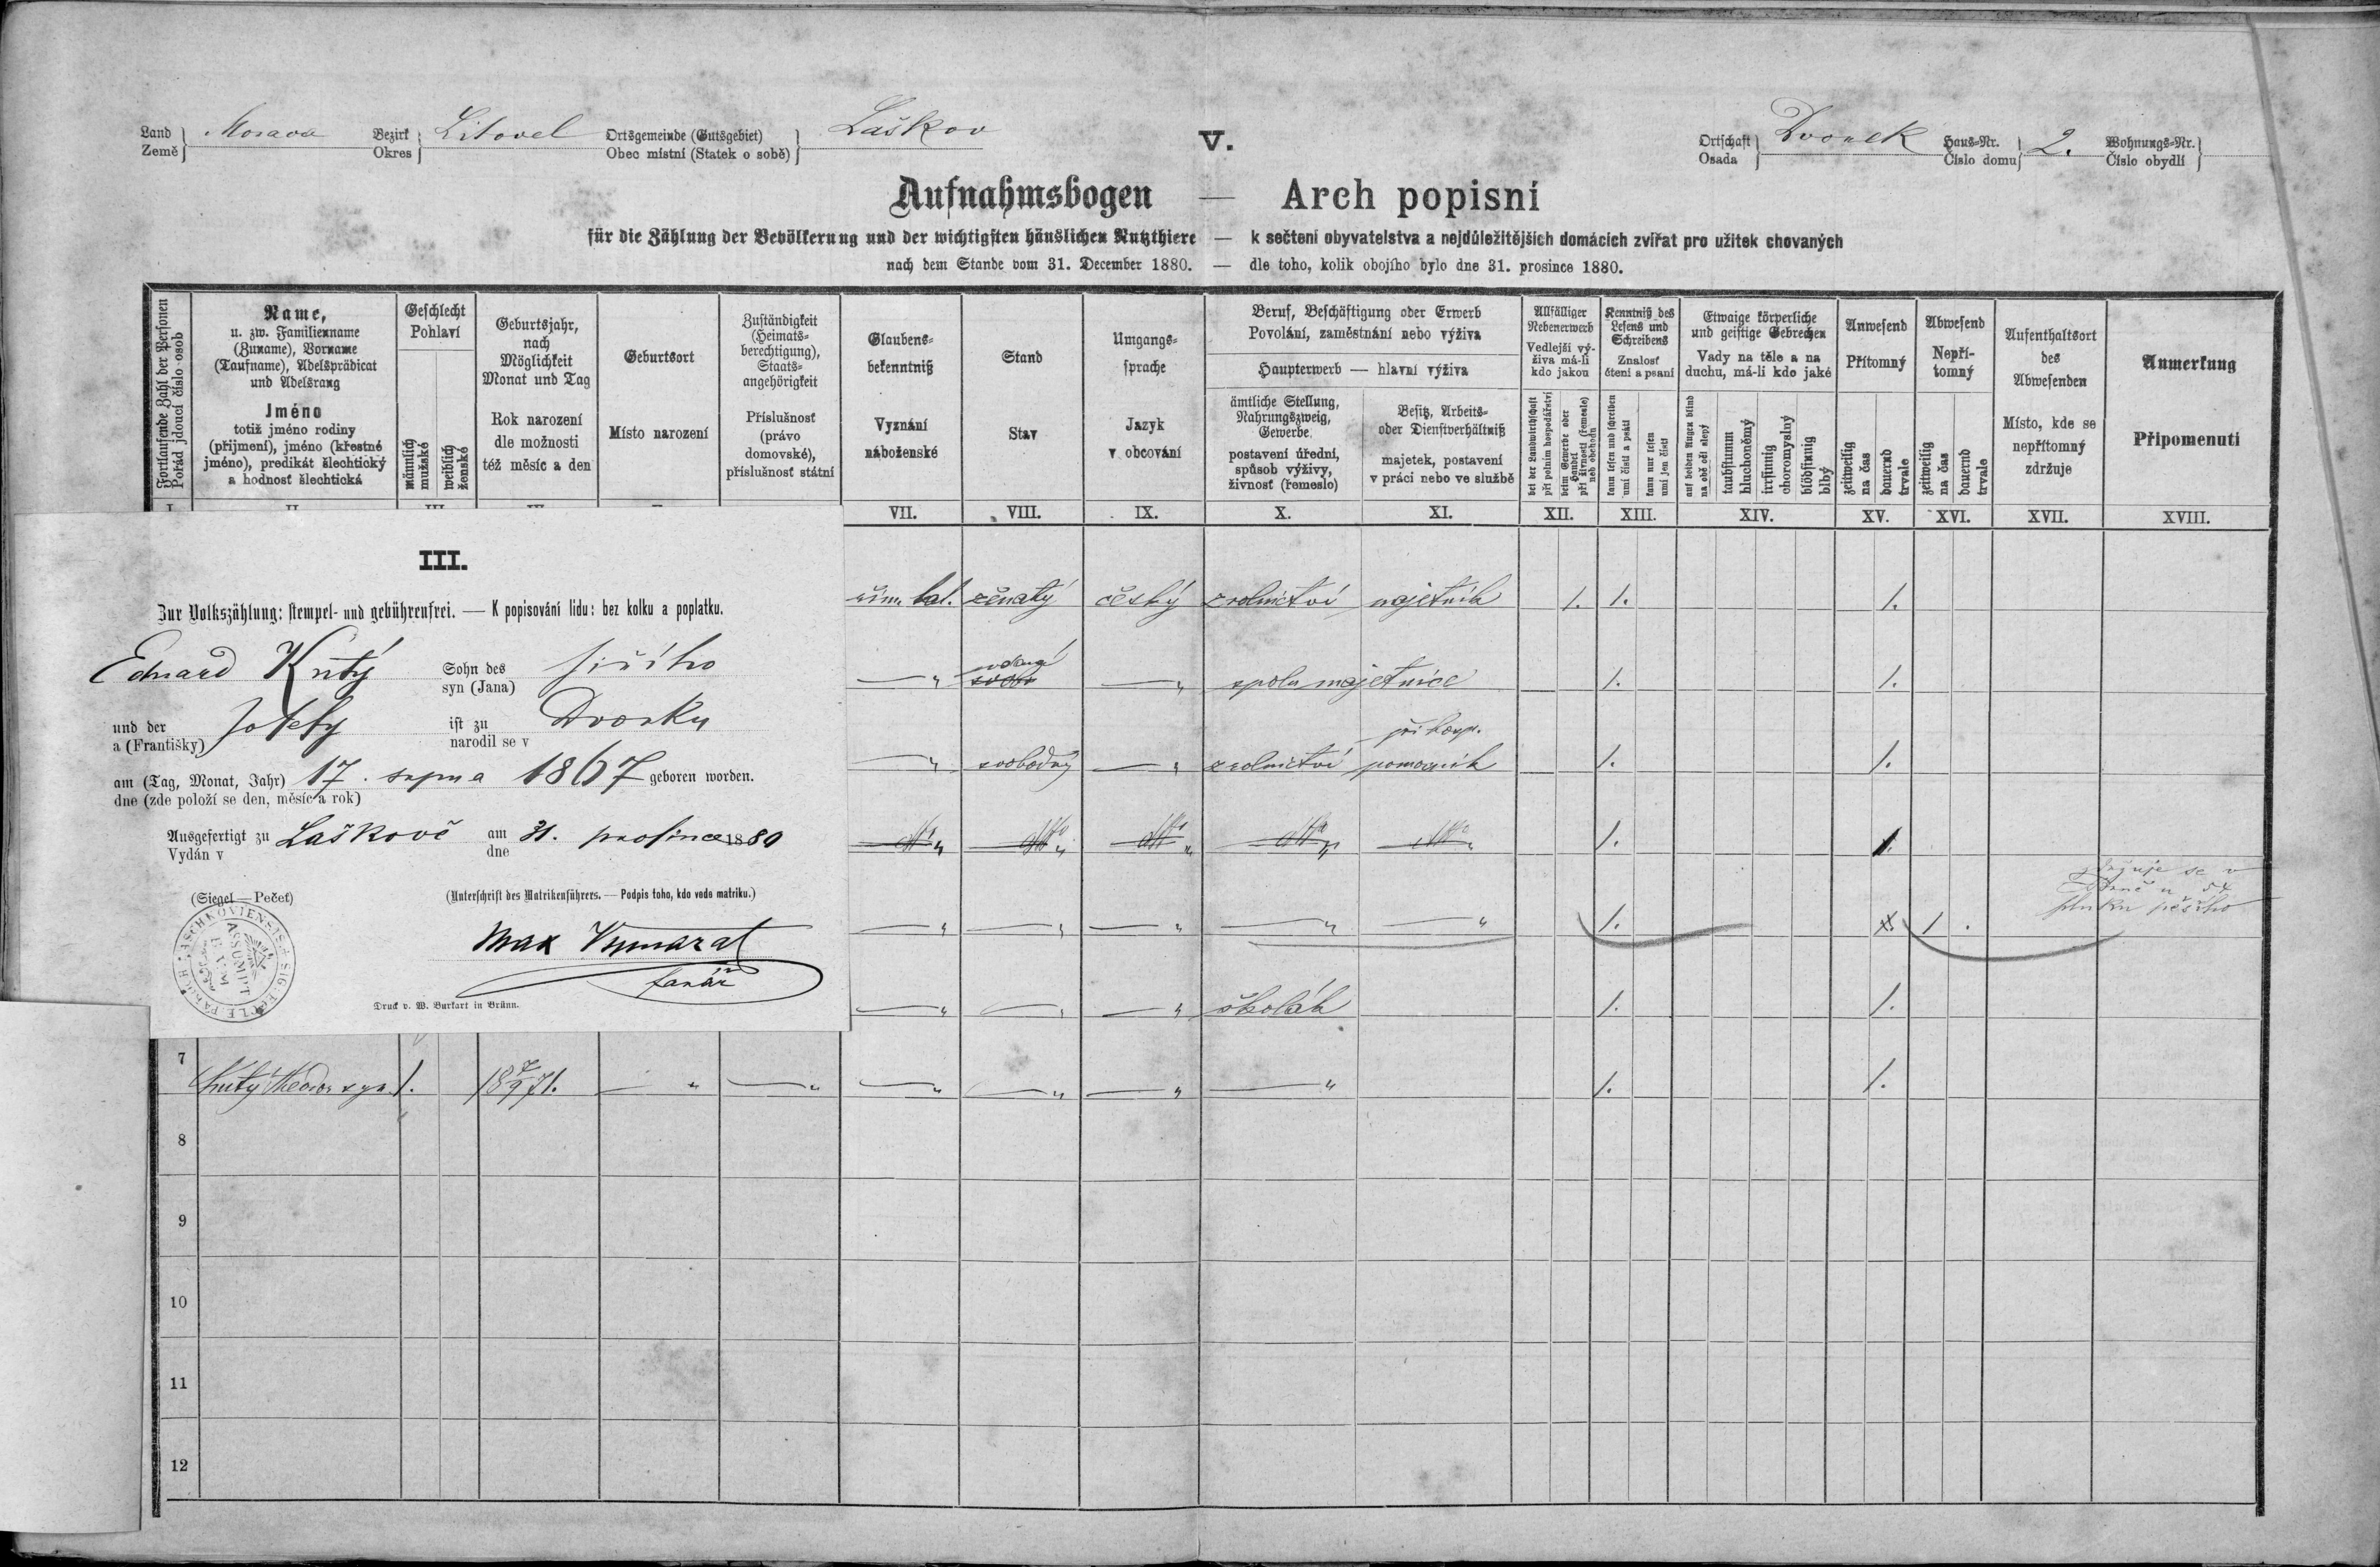 Land Země } Morava Bezirk Okres } Litovel Ortsgemeinde (Gutsgebiet) Obec místní (Statek o sobě) } Laškov
V.
Ortschaft Osada } Dvorek Haus-Nr. Číslo domu } 2. Wohnungs-Nr. Číslo obydlí }
Aufnahmsbogen — Arch popisní
für die Zählung der Bevölkerung und der wichtigsten häuslichen Nutzthiere — k sečtení obyvatelstva a nejdůležitějších domácích zvířat pro užitek chovaných
nach dem Stande vom 31. December 1880. — dle toho, kolik obojího bylo dne 31. prosince 1880.
Fortlaufende Zahl der Personen
Pořád jdoucí číslo osob
Name,
u. zw. Familienname
(Zuname), Vorname
(Taufname), Adelsprädicat
und Adelsrang
Jméno
totiž jméno rodiny
(přijmení), jméno (křestné
jméno), predikát šlechtický
a hodnosť šlechtická
Geschlecht
Pohlaví
männlich
mužské
weiblich
ženské
Geburtsjahr,
nach
Möglichkeit
Monat und Tag
Rok narození
dle možnosti
též měsíc a den
Geburtsort
Místo narození
Zuständigkeit
(Heimats-
berechtigung),
Staats-
angehörigkeit
Příslušnosť
(právo
domovské),
příslušnosť státní
Glaubens-
bekenntniß
Vyznání
náboženské
Stand
Stav
Umgangs-
sprache
Jazyk
v obcování
Beruf, Beschäftigung oder Erwerb
Povolání, zaměstnání nebo výživa
Haupterwerb — hlavní výživa
ämtliche Stellung,
Nahrungszweig,
Gewerbe
postavení úřední,
spůsob výživy,
živnosť (řemeslo)
Besitz, Arbeits-
oder Dienstverhältniß
majetek, postavení
v práci nebo ve službě
Allfälliger
Nebenerwerb
Vedlejší vý-
živa má-li
kdo jakou
bei der Landwirthschaft
při polním hospodářství
beim Gewerbe oder
Handel
při živnosti (řemesle)
neb obchodu
Kenntniß des
Lesens und
Schreibens
Znalosť
čtení a psaní
kann lesen und schreiben
umí čísti a psáti
kann nur lesen
umí jen čísti
Etwaige körperliche
und geistige Gebrechen
Vady na těle a na
duchu, má-li kdo jaké
auf beiden Augen blind
na obě oči slepý
taubstumm
hluchoněmý
irrsinnig
choromyslný
blödsinnig
blbý
Anwesend
Přítomný
zeitweilig
na čas
dauernd
trvale
Abwesend
Nepří-
tomný
zeitweilig
na čas
dauernd
trvale
Aufenthaltsort
des
Abwesenden
Místo, kde se
nepřítomný
zdržuje
Anmerkung
Připomenutí
VII. VIII. IX. X. XI. XII. XIII. XIV. XV. XVI. XVII. XVIII.
III.
Zur Volkszählung: stempel- und gebührenfrei. — K popisování lidu: bez kolku a poplatku.
Eduard Krutý Sohn des syn (Jana) Jiřího
und der a (Františky) Josefy ist zu narodil se v Dvorku
am (Tag, Monat, Jahr) 17. srpna 1867 geboren worden.
dne (zde položí se den, měsíc a rok)
Ausgefertigt zu Vydán v Laškově am dne 31. prosince 1880
(Siegel — Pečeť)
(Unterschrift des Matrikenführers. — Podpis toho, kdo vede matriku.)
Max Vymazal
farář
Druck v. W. Burkart in Brünn.
řím. kat. ženatý český z rolnictví majetník 1. 1. 1.
vdaná
spolumajetnice 1. 1.
při hosp.
— „ svobodný — „ z rolnictví pomocník 1. 1.
1. 1.
zdržuje se v
u 54
pluku pěšího
— „ — „ — „ — „ — „ 1. 1.
— „ — „ — „ školák 1. 1.
7 Krutý Theodor syn 1. 18 7/9 71. — „ — „ — „ — „ — „ — „ 1. 1.
8
9
10
11
12